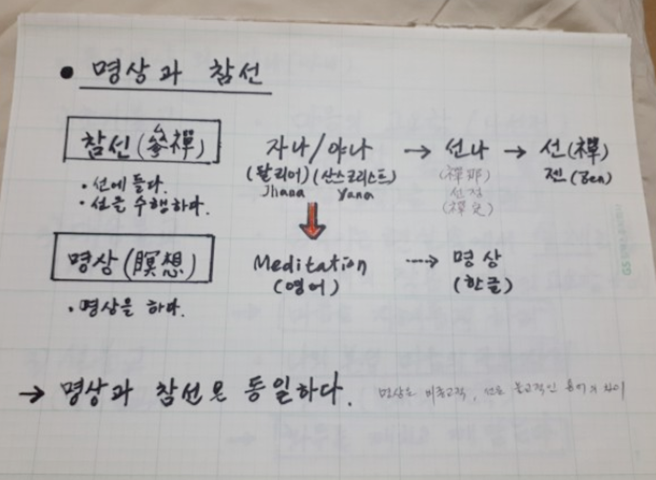 • 명상과 참선
참선(參禪) 자나/야나 → 선나 → 선(禪)
(팔리어)(산스크리스트) (禪那) 젠(Zen)
• 선에 들다. Jhana yana 선정
• 선을 수행하다. (禪定)
명상(瞑想) Meditation ---> 명상
(영어) (한글)
• 명상을 하다.
→ 명상과 참선은 동일하다. 명상은 비종교적, 선은 불교적인 용어의 차이